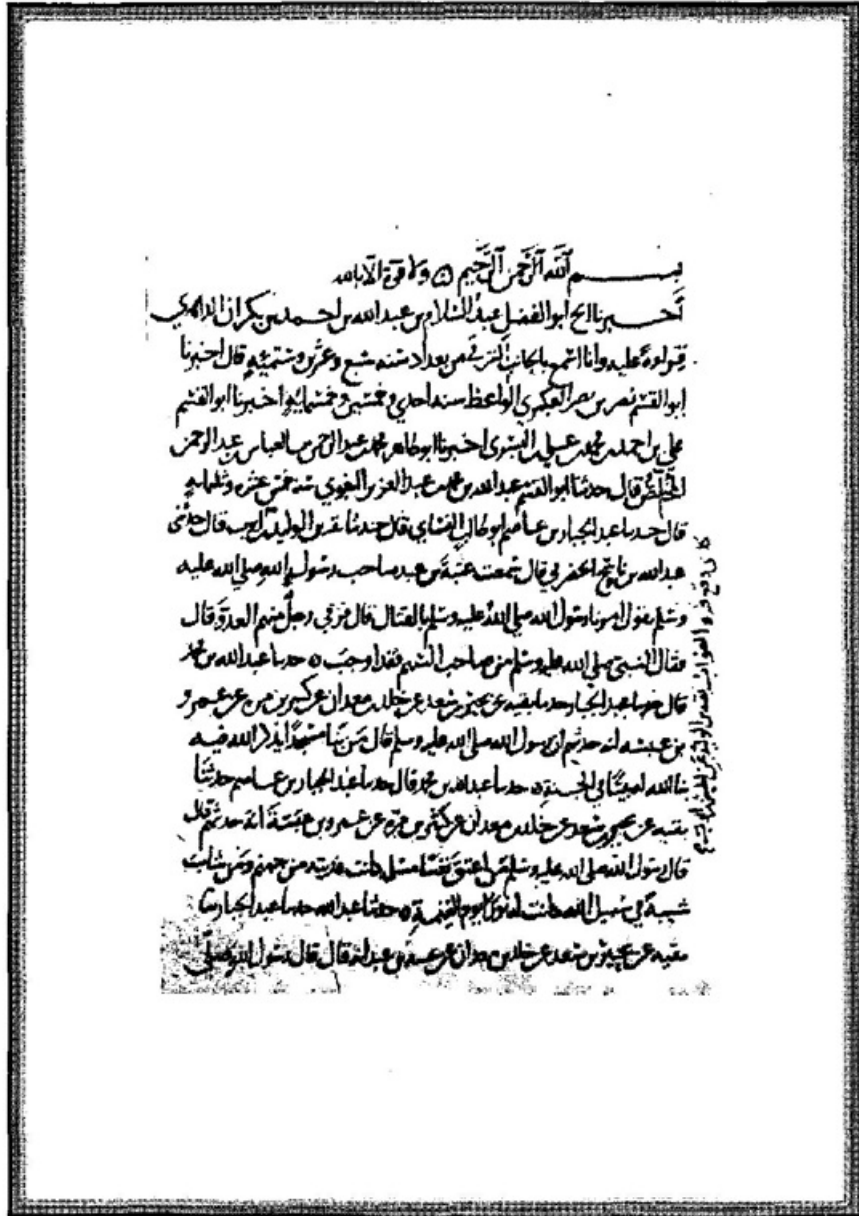 بسم الله الرحمن الرحيم ولا قوة الا بالله
اخبرنا الشيخ ابو الفضل عبد السلام بن عبد الله بن احمد بن بكران الداهري
قراءة عليه وانا اسمع بالجانب الغربي من بغداد سنه سبع وعشرين وستمئه قال اخبرنا
ابو القسم نصر بن نصر العكبري الواعظ سنه احدي وخمسين وخمسمايه اخبرنا ابو القسم
علي بن احمد بن محمد بن علي بن البسري اخبرنا ابو طاهر محمد بن عبد الرحمن بن العباس بن عبد الرحمن
المخلص قال حدثنا ابو القسم عبد الله بن محمد بن عبد العزيز البغوي سنه خمس عشره وثلثمايه
قال حدثنا عبد الجبار بن عاصم ابو طالب النسائي قال حدثنا بقية بن الوليد قال حدثني
عبد الله بن ناسح الحضرمي قال سمعت عتبة بن عبد صاحب رسول الله صلي الله عليه
وسلم يقول امرنا رسول الله صلي الله عليه وسلم بالقتال قال فرمي رجل منهم العدو قال
فقال النبي صلي الله عليه وسلم من صاحب السهم فقد اوجب حدثنا عبد الله بن محمد
قال حدثنا عبد الجبار حدثنا بقيه عن بحير بن سعد عن خالد بن معدان عن كثير بن مره عن عمرو
بن عبسه انه حدثهم ان رسول الله صلي الله عليه وسلم قال من بنا مسجدا ليذكر الله فيه
بنا الله له بيتا في الجنة حدثنا عبد الله بن محمد قال حدثنا عبد الجبار بن عاصم حدثنا
بقيه عن بحير بن سعد عن خالد بن معدان عن كثير بن مره عن عمرو بن عبسة انه حدثهم قال
قال رسول الله صلي الله عليه وسلم من اعتق نفسا مسلمه كانت فديته من جهنم ومن شاب
شيبة في سبيل الله كانت له نورا يوم القيمة حدثنا عبد الله حدثنا عبد الجبار حدثنا
بقيه عن بحير بن سعد عن خالد بن معدان عن عتبة بن عبد انه قال قال رسول الله صلي